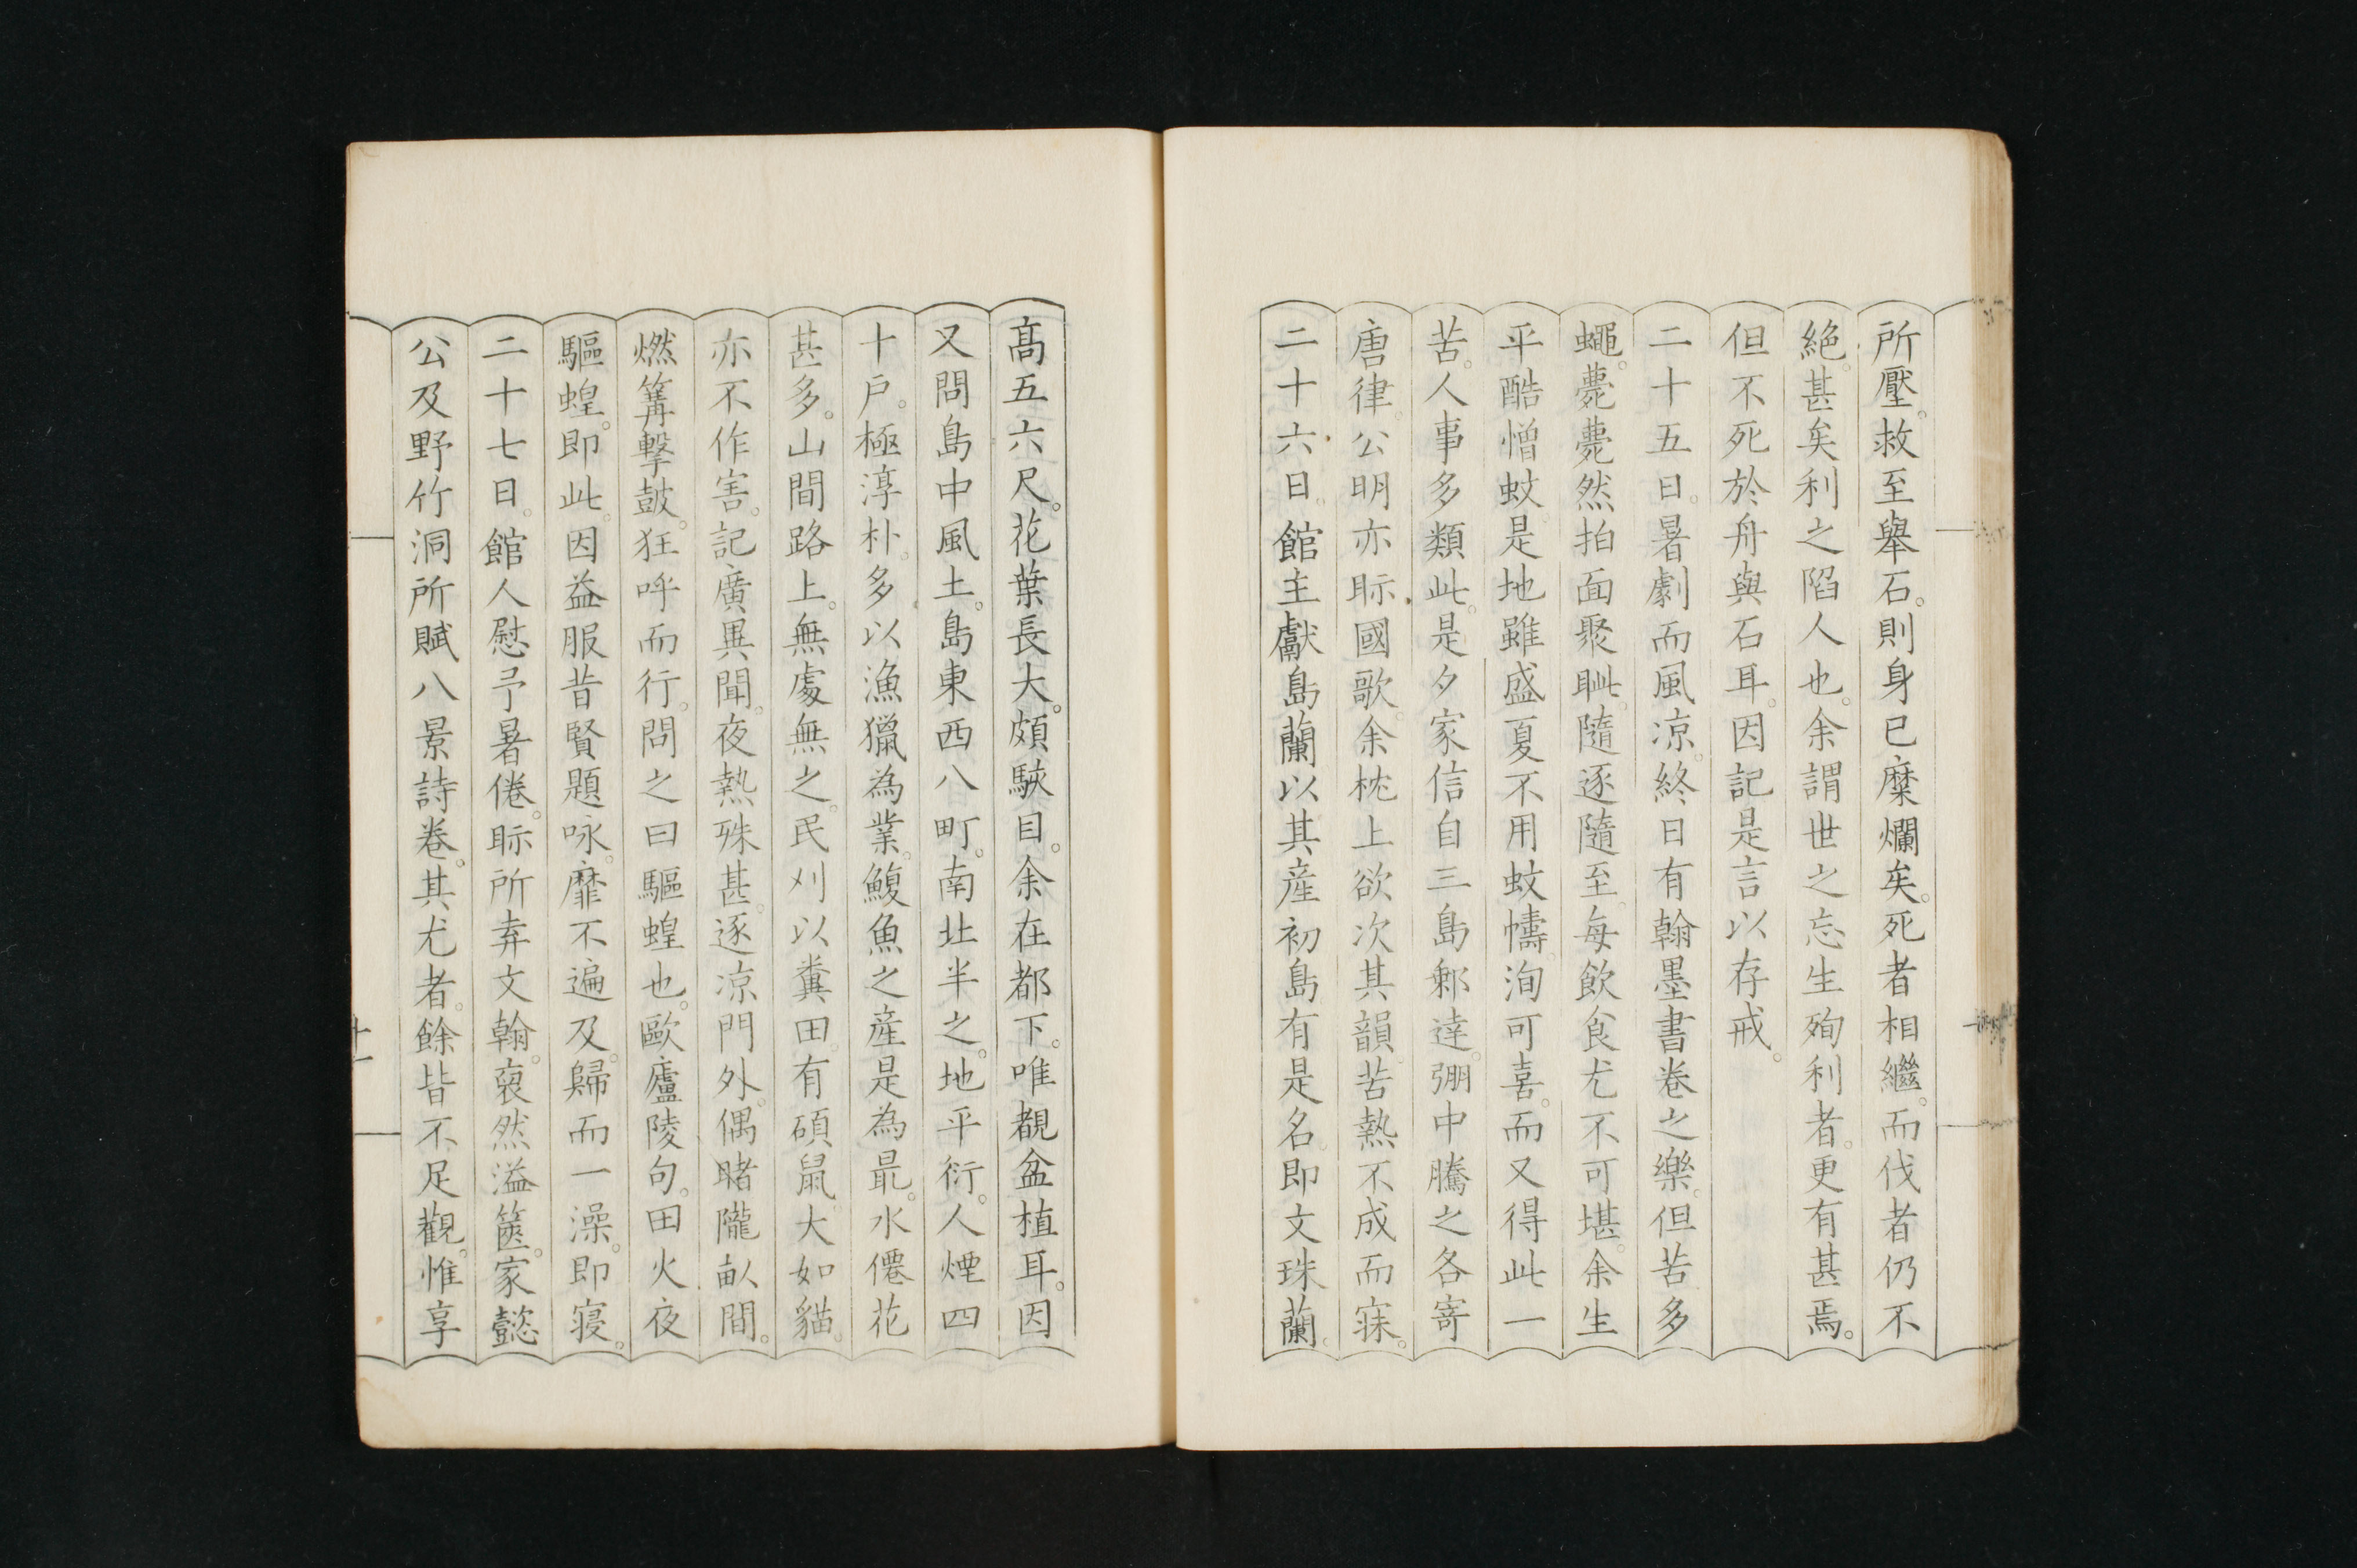 所壓。救至舉石。則身已糜爛矣。死者相繼。而伐者仍不
絶。甚矣利之陷人也。余謂世之忘生殉利者。更有甚焉。
但不死於舟與石耳。因記是言以存戒。
二十五日。暑劇而風凉。終日有翰墨書卷之樂。但苦多
蠅。薨薨然拍面聚眦。隨逐隨至。每飲食尤不可堪。余生
平酷憎蚊。是地雖盛夏不用蚊幬。洵可喜。而又得此一
苦。人事多類此。是夕家信自三島郵達。弸中騰之各寄
唐律。公明亦眎國歌。余枕上欲次其韻。苦熱不成而寐。
二十六日。館主獻島蘭以其産初島有是名。即文珠蘭。
髙五六尺。花葉長大。頗駭目。余在都下。唯覩盆植耳。因
又問島中風土。島東西八町。南北半之。地平衍。人煙四
十戸。極淳朴。多以漁獵為業。鰒魚之産是為最。水僊花
甚多。山間路上。無處無之。民刈以糞田。有碩鼠。大如貓。
亦不作害。記廣異聞。夜熱殊甚。逐凉門外。偶睹隴畝間。
燃篝擊鼓。狂呼而行。問之曰驅蝗也。歐廬陵句。田火夜
驅蝗。即此。因益服昔賢題咏。靡不遍及。歸而一澡。即寢。
二十七日。館人慰予暑倦。眎所弆文翰。裒然溢篋。家懿
公及野竹洞所賦八景詩卷。其尤者。餘皆不足觀。惟享
十一